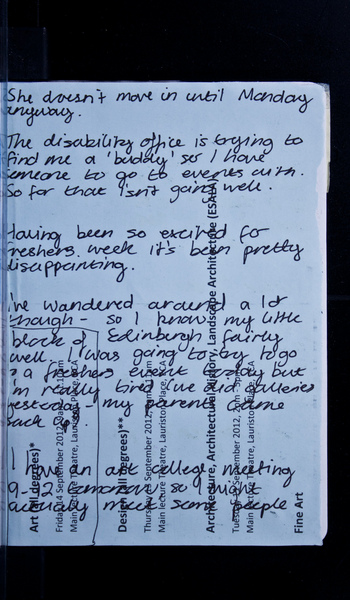 She doesn't move in until Monday
anyway.
The disability office is trying to
find me a 'buddy' so I have
someone to go to events with.
So far that isn't going well.
Having been so excited for
freshers week it's been pretty
disappointing.
I've wandered around a lot
though - so I know my little
block of Edinburgh fairly
well. I was going to try to go
to a freshers event today but
I'm really tired I've did galleries
yesterday - my parents came
back
I have an art college meeting
9-12 tomorrow so I might
actually meet some people
Art (all degrees)*
Friday 14 September 2012
Main Lecture Theatre, Lauriston Place, ECA
Design (all degrees)**
Thursday 13 September 2012
Main lecture Theatre, Lauriston Place
Architecture, Architectural History, Landscape Architecture (ESALA)
Tuesday September 2012
Main Lecture Theatre, Lauriston Place
Fine Art